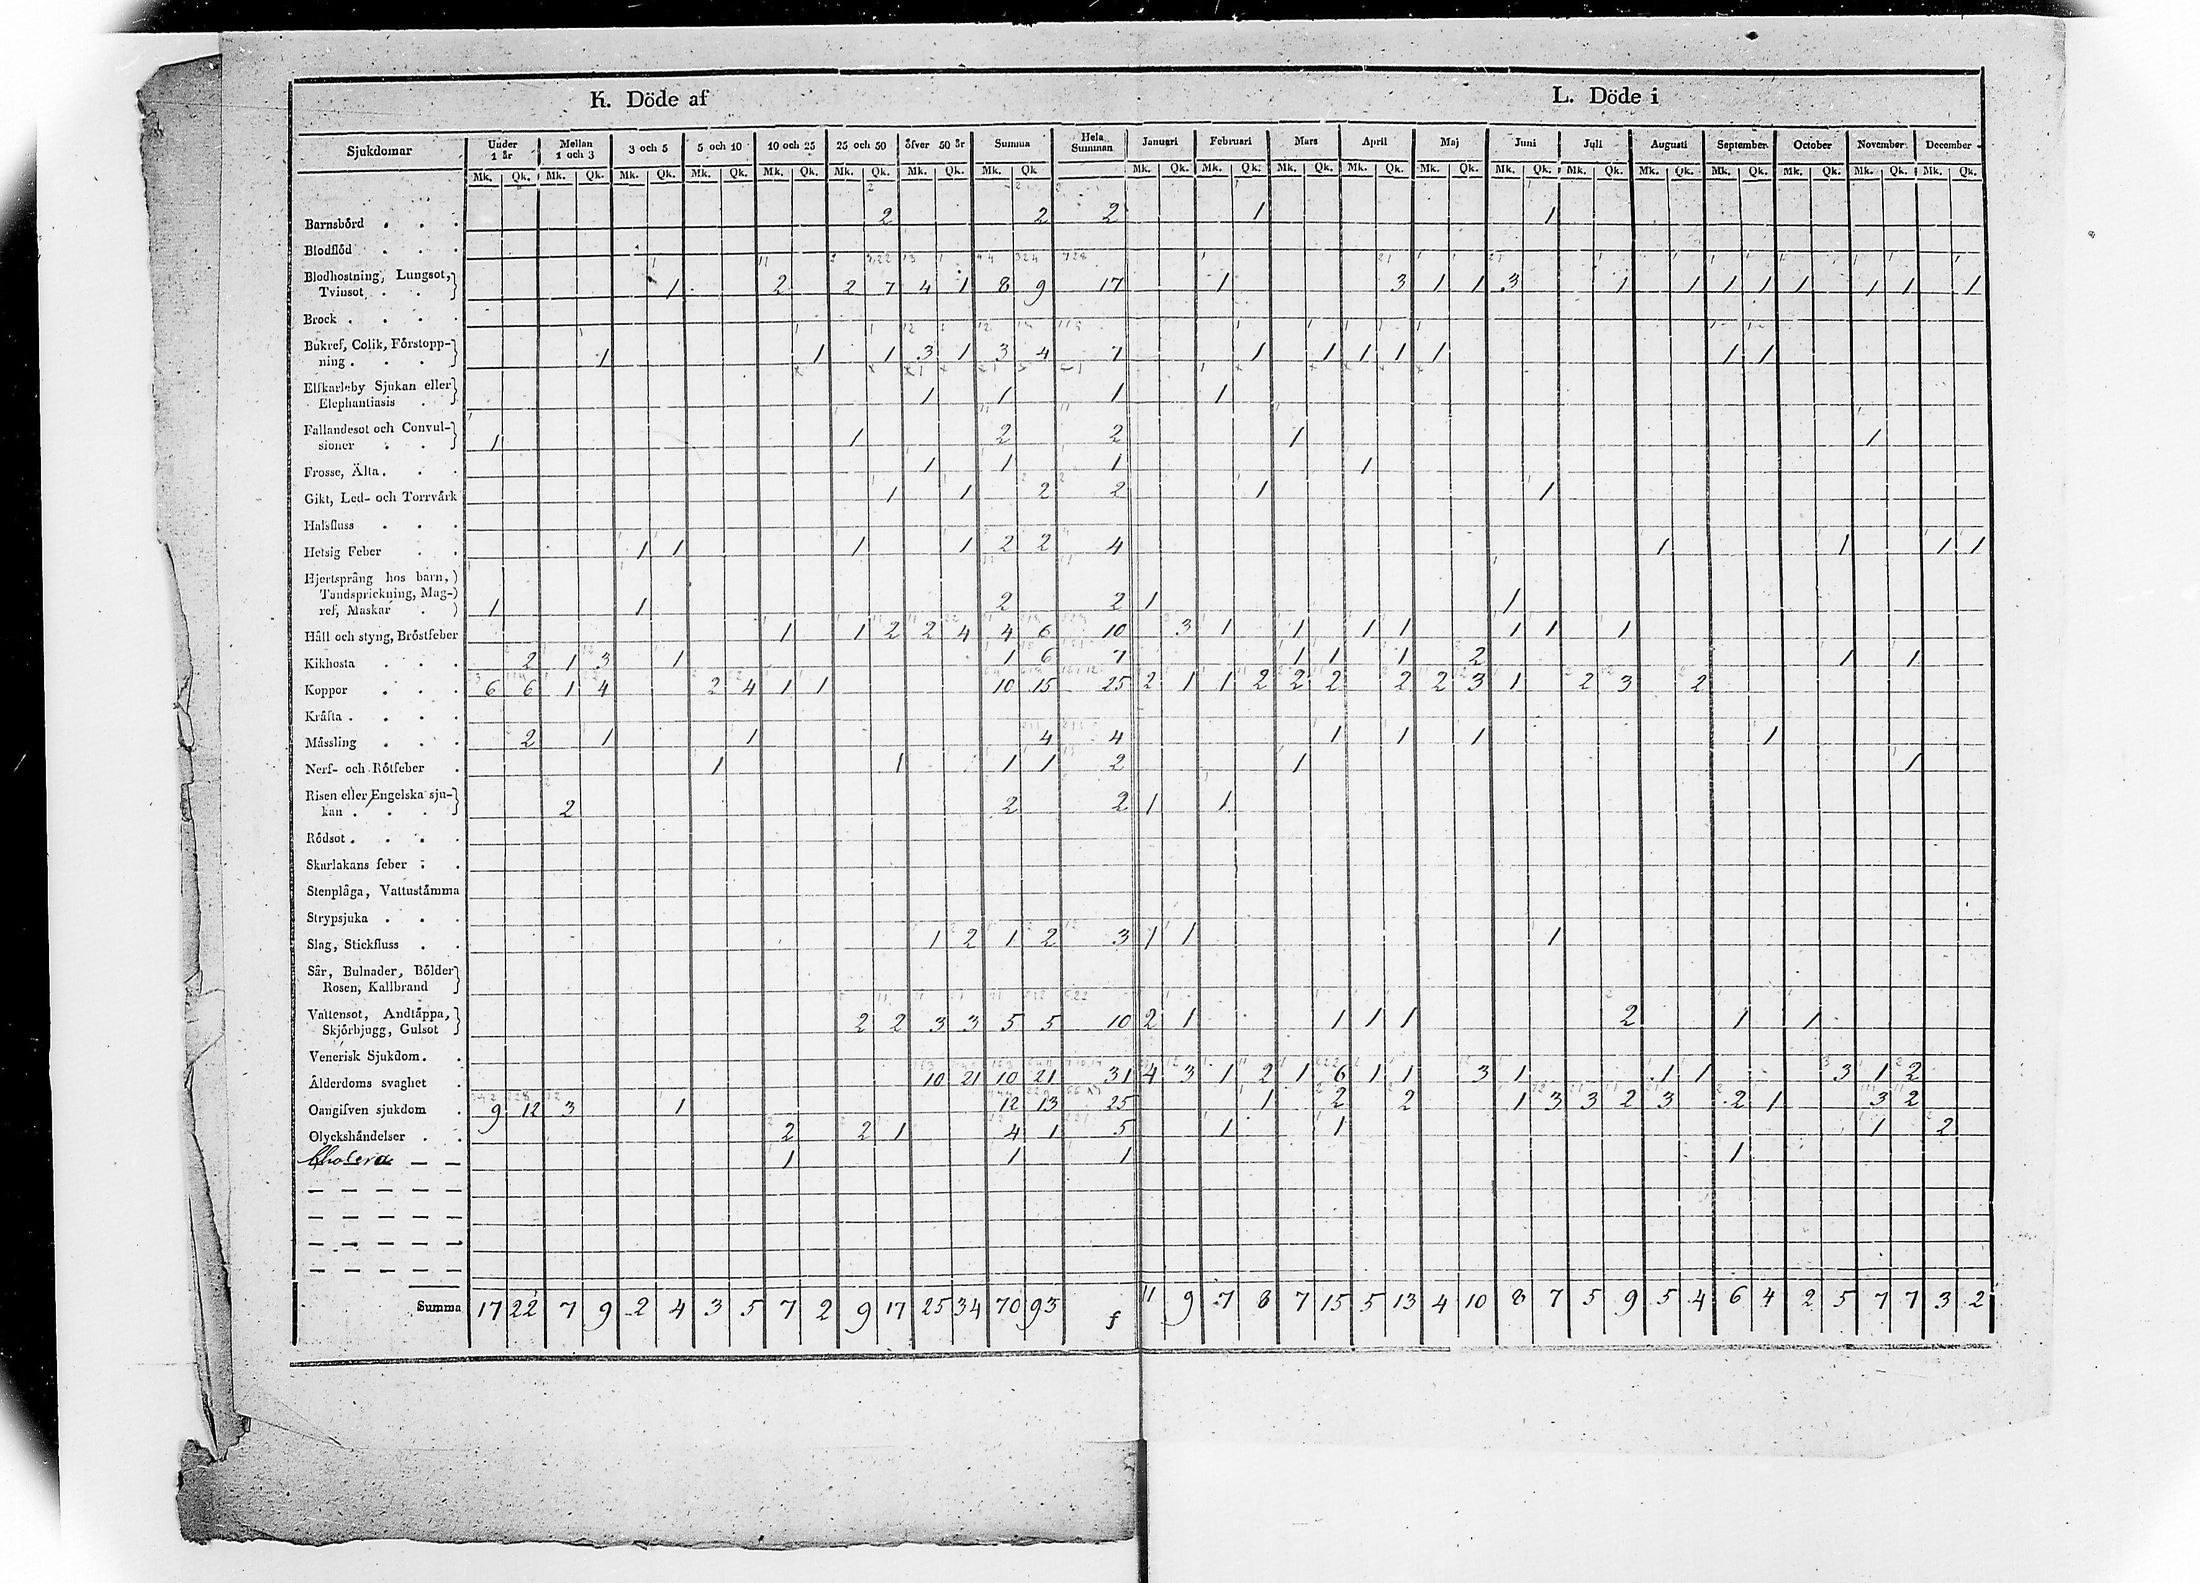 K. Döde af L. Döde i
Sjukdomar Under 1 år Mellan 1 och 3 3 och 5 5 och 10 10 och 25 25 och 50 öfver 50 år Summa Hela Summan Januari Februari Mars April Maj Juni Juli Augusti September October November December
Mk. Qk. Mk. Qk. Mk. Qk. Mk. Qk. Mk. Qk. Mk. Qk. Mk. Qk. Mk. Qk Mk. Qk. Mk. Qk. Mk. Qk. Mk. Qk. Mk. Qk. Mk. Qk. Mk. Qk. Mk. Qk. Mk. Qk. Mk. Qk. Mk. Qk. Mk. Qk.
Barnsbörd . . . 2 2 2 1 1
Blodflöd . . .
Blodhostning, Lungsot,
Tvinsot . . 1 2 2 7 4 1 8 9 17 1 3 1 1 3 1 1 1 1 1 1 1 1 1
Brock . . . .
Bukref, Colik, Förstopp-
ning . . . 1 1 1 3 1 3 4 7 1 1 1 1 1 1 1
Elfkarleby Sjukan eller
Elephantiasis . 1 1 1 1
Fallandesot och Convul-
sioner . . 1 1 2 2 1 1
Frosse, Älta . . . 1 1 1 1
Gikt, Led- och Torrvärk 1 1 2 2 1 1
Halsfluss . . .
Hetsig Feber . . 1 1 1 1 2 2 4 1 1 1 1
Hjertsprång hos barn,
Tandsprickning, Mag-
ref, Maskar . 1 1 2 2 1 1
Håll och styng, Bröstfeber 1 1 2 2 4 4 6 10 3 1 1 1 1 1 1 1
Kikhosta . . . 2 1 3 1 1 6 7 1 1 1 2 1 1
Koppor . . . 6 6 1 4 2 4 1 1 10 15 25 2 1 1 2 2 2 2 2 3 1 2 3 2
Kräfta . . . .
Mässling . . . 2 1 1 4 4 1 1 1 1
Nerf- och Rötfeber . 1 1 1 1 2 1 1
Risen eller Engelska sju-
kan . . . 2 2 2 1 1
Rödsot . . . .
Skarlakans feber . .
Stenplåga, Vattustämma
Strypsjuka . . .
Slag, Stickfluss . . 1 2 1 2 3 1 1 1
Sår, Bulnader, Bölder
Rosen, Kallbrand
Vattensot, Andtäppa,
Skjörbjugg, Gulsot 2 2 3 3 5 5 10 2 1 1 1 1 2 1 1
Venerisk Sjukdom . .
Ålderdoms svaghet . 10 21 10 21 31 4 3 1 2 1 6 1 1 3 1 1 1 3 1 2
Oangifven sjukdom . 9 12 3 1 12 13 25 1 2 2 1 3 3 2 3 2 1 3 2
Olyckshändelser . . 2 2 1 4 1 5 1 1 1 2
Cholera 1 1 1 1
Summa 17 22 7 9 2 4 3 5 7 2 9 17 25 34 70 93 11 9 7 8 7 15 5 13 4 10 8 7 5 9 5 4 6 4 2 5 7 7 3 2